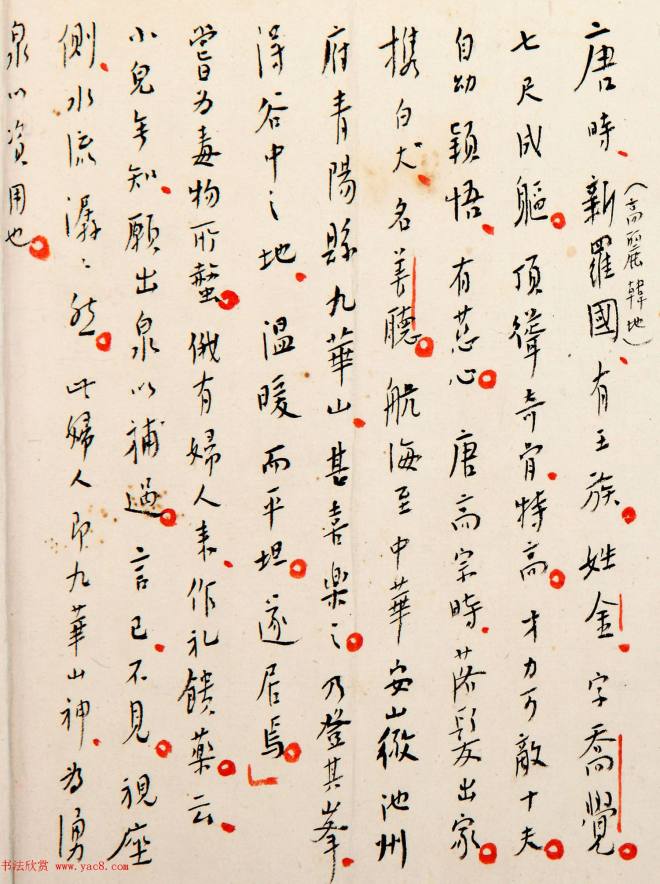 唐時、新羅國、(高麗韓地)有王族。姓金、字喬覺。
七尺成軀。頂聳奇骨、特高。才力可敵十夫。
自幼穎悟、有慈心。唐高宗時、落髮出家。
携白犬、名善聽。航海至中華安山徽池州
府青陽縣九華山、甚喜樂之。乃登其峯、
得谷中之地、溫暖而平坦。遂居焉。
嘗為毒物所螫。俄有婦人來、作礼饋藥。云、
小兒無知、願出泉以補過。言已、不見。視座
側、水流潺〻然。此婦人即九華山神、為湧
泉以資用也。
书法欣赏 www.yac8.com